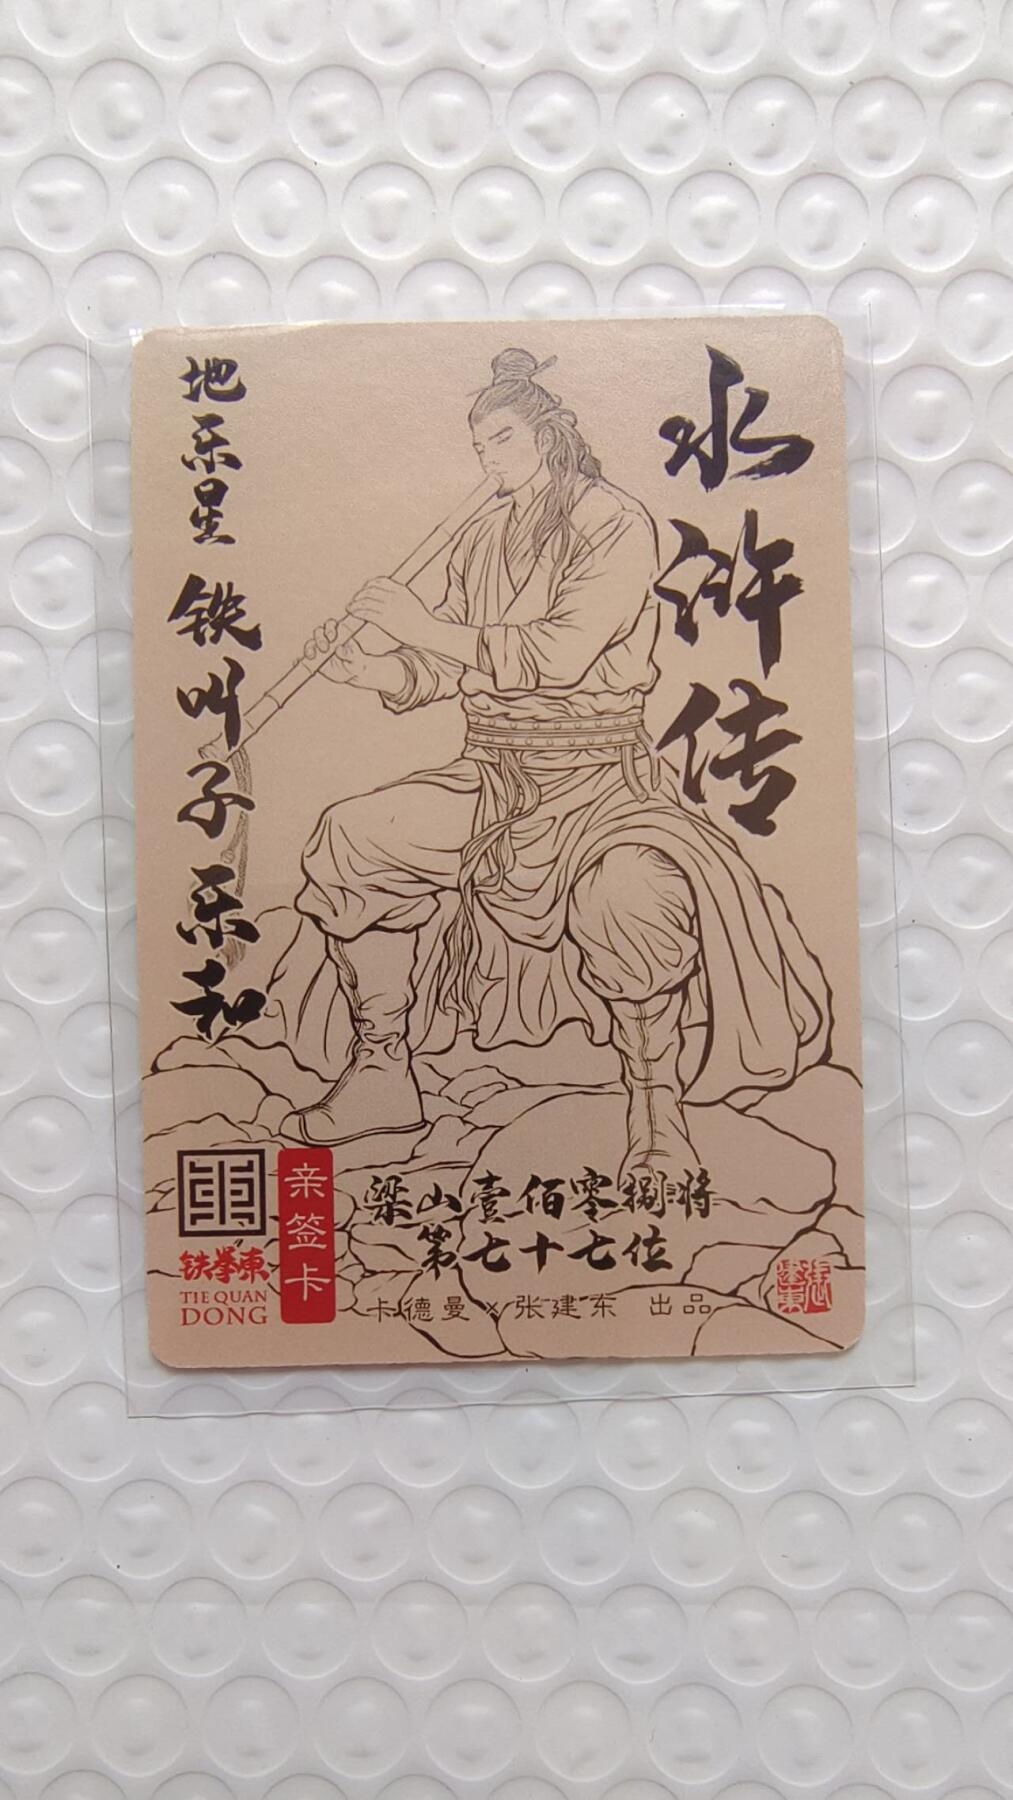 水浒传
地乐星 铁叫子乐和
梁山壹佰零捌将
第七十七位
亲签卡
铁拳東
TIE QUAN
DONG
卡德曼 × 张建东 出品